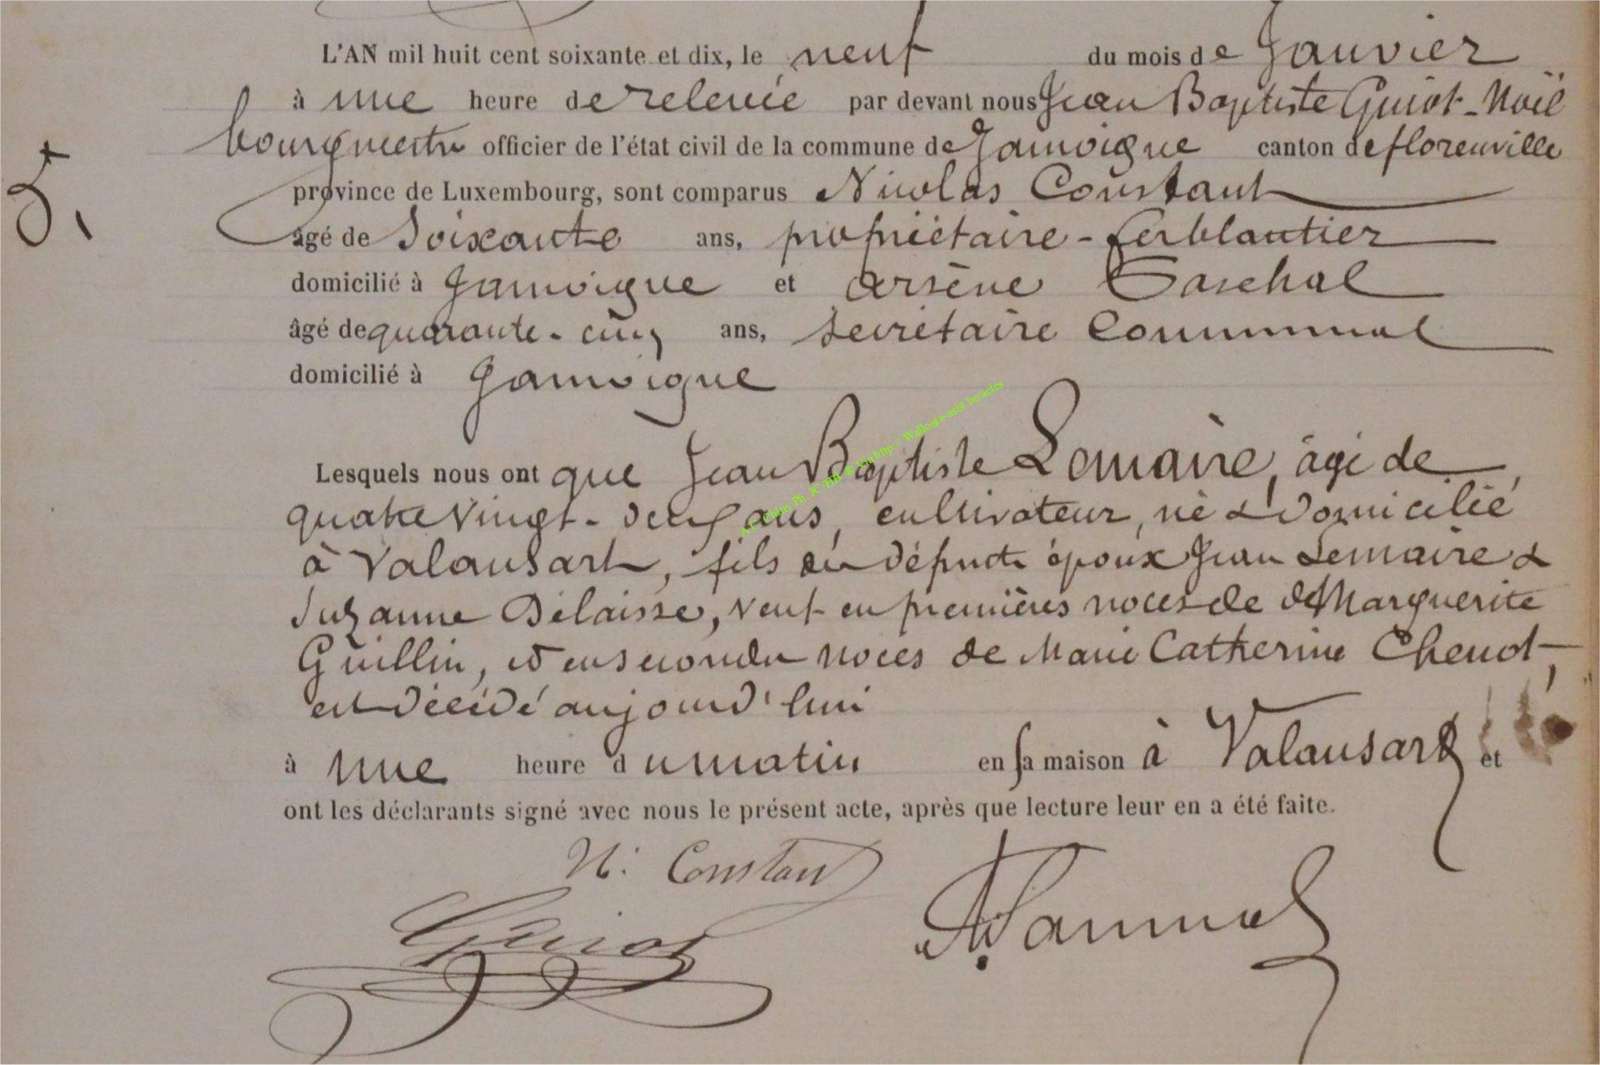 L'AN mil huit cent soixante et dix, le neuf du mois de Janvier
à une heure de relevée par devant nous Jean Baptiste Guiot-Noël
bourgmestre officier de l'état civil de la commune de Jamoigne canton de florenville
province de Luxembourg, sont comparus Nicolas Constant
âgé de soixante ans, propriétaire-ferblantier
domicilié à Jamoigne et Arsène
âgé de quarante-cinq ans, secrétaire Communal
domicilié à Jamoigne
5.
Lesquels nous ont que Jean Baptiste Lemaire, âgé de
quatre vingt-deux ans, cultivateur, né & domicilié
à Valansart, fils des défunts époux Jean Lemaire &
Suzanne Delaisse, veuf en premières noces de Marguerite
Guillin, et en secondes noces de Marie Catherine Chenot,
est décédé aujourd'hui
à une heure du matin en sa maison à Valansart et
ont les déclarants signé avec nous le présent acte, après que lecture leur en a été faite.
N. Constant
Guiot